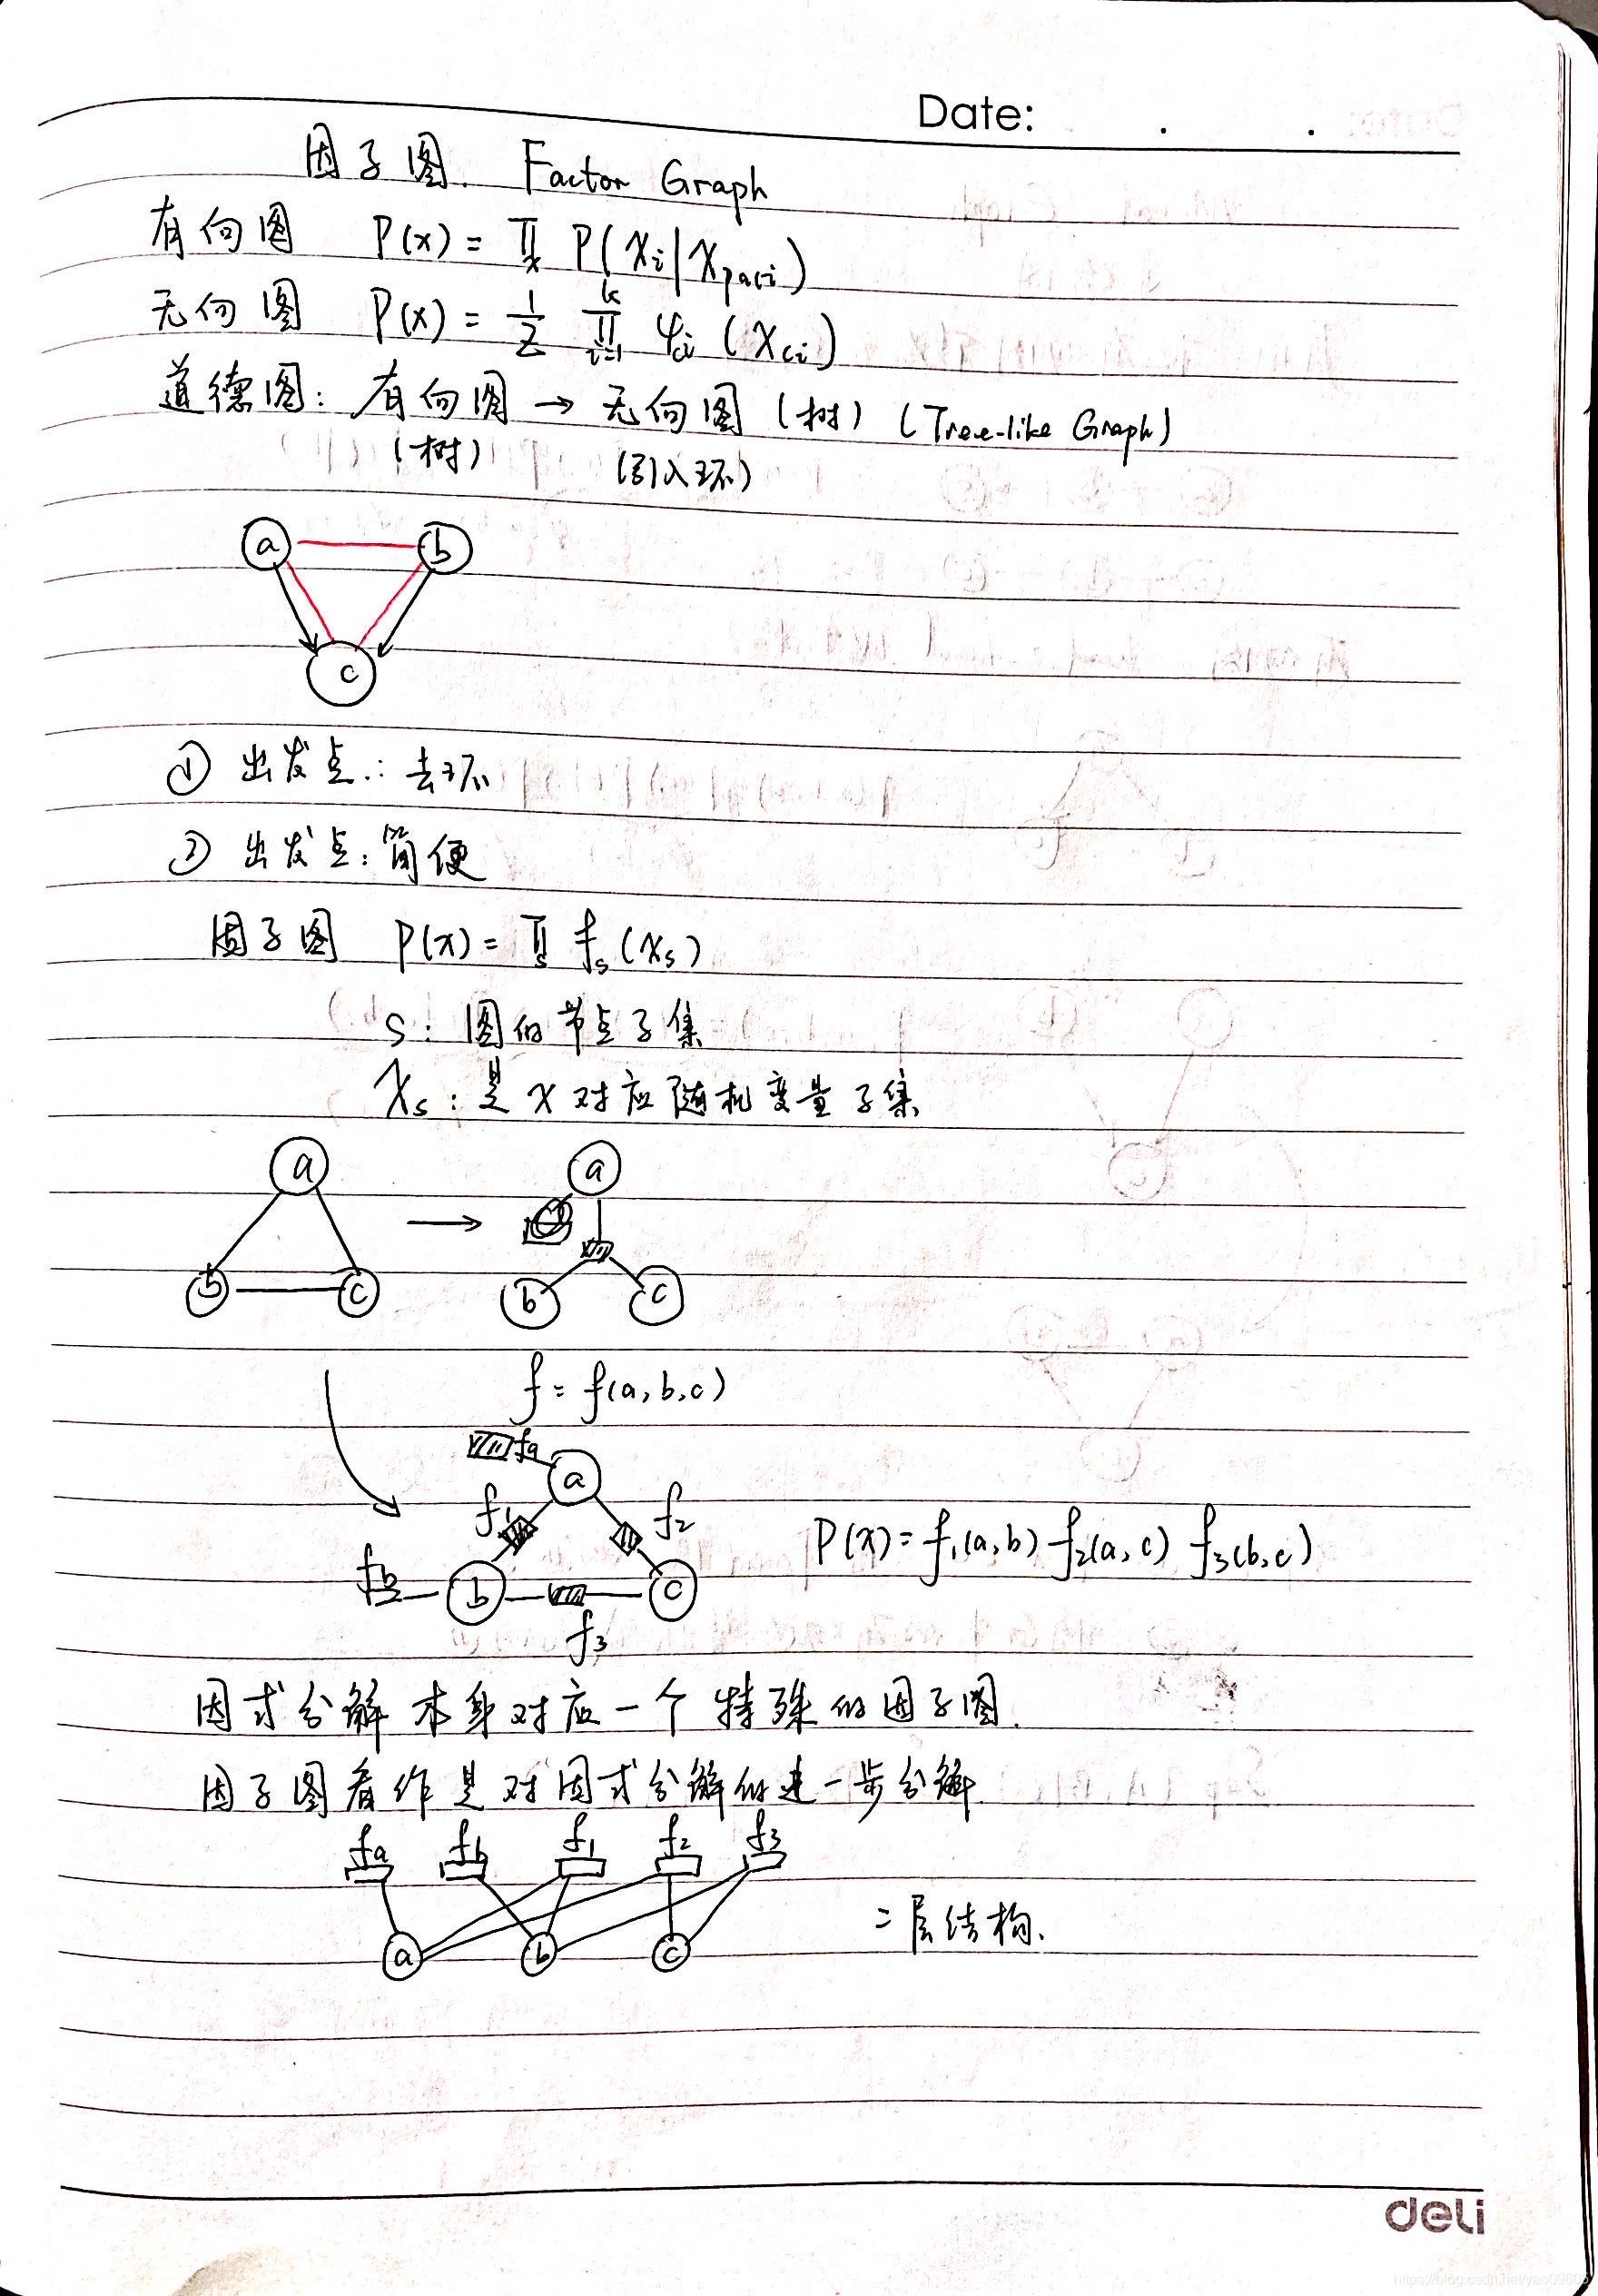 Date: . .
因子图. Factor Graph
有向图 P(x) = ∏ P(xᵢ|x_pa(i))
无向图 P(x) = 1/Z ∏ᵢ₌₁ᴷ ψcᵢ (xcᵢ)
道德图: 有向图 → 无向图 (树) (Tree-like Graph)
(树) (引入环)
a b
c
① 出发点: 去环
② 出发点: 简便
因子图 P(x) = ∏ₛ fₛ(xₛ)
S: 图的节点子集
xₛ: 是 x 对应随机变量子集
a → a
b c b c
f = f(a, b, c)
fa a
f₁ f₂
P(x) = f₁(a, b) f₂(a, c) f₃(b, c)
fb b c
f₃
因式分解本身对应一个特殊的因子图.
因子图看作是对因式分解的进一步分解
fa fb f₁ f₂ f₃
二层结构.
a b c
deli